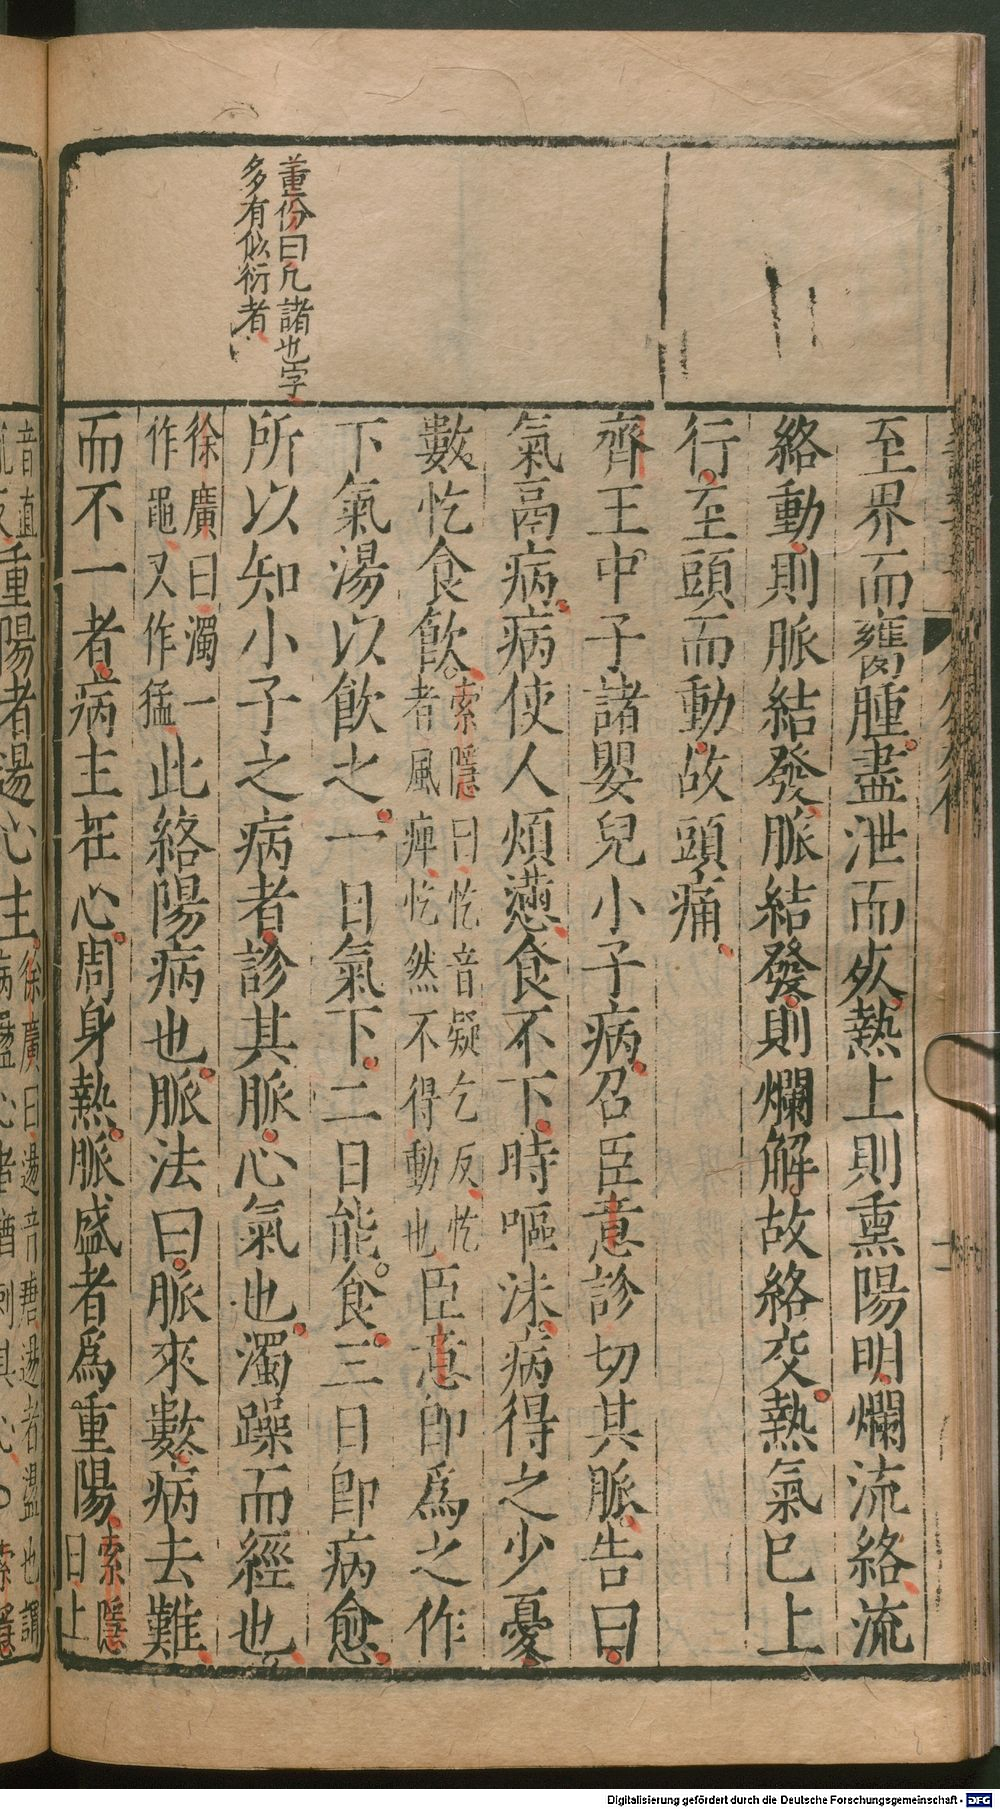 董份曰凡諸也字
多有似衍者
至界而癰腫盡泄而死熱上則熏陽明爛流絡流
絡動則脈結發脈結發則爛解故絡交熱氣已上
行至頭而動故頭痛
齊王中子諸嬰兒小子病召臣意診切其脈告曰
氣鬲病病使人煩懣食不下時嘔沫病得之少憂
數忔食飲索隱曰忔音疑乞反忔者風痺忔然不得動也臣意即爲之作
下氣湯以飲之一日氣下二日能食三日即病愈
所以知小子之病者診其脈心氣也濁躁而經也
徐廣曰濁一作黽又作猛此絡陽病也脈法曰脈來數病去難
而不一者病主在心周身熱脈盛者爲重陽索隱曰上
音直
重陽者逿心主徐廣曰逿音唐逿者盪也謂病盪心者猶刺其心〇索隱
Digitalisierung gefördert durch die Deutsche Forschungsgemeinschaft - DFG